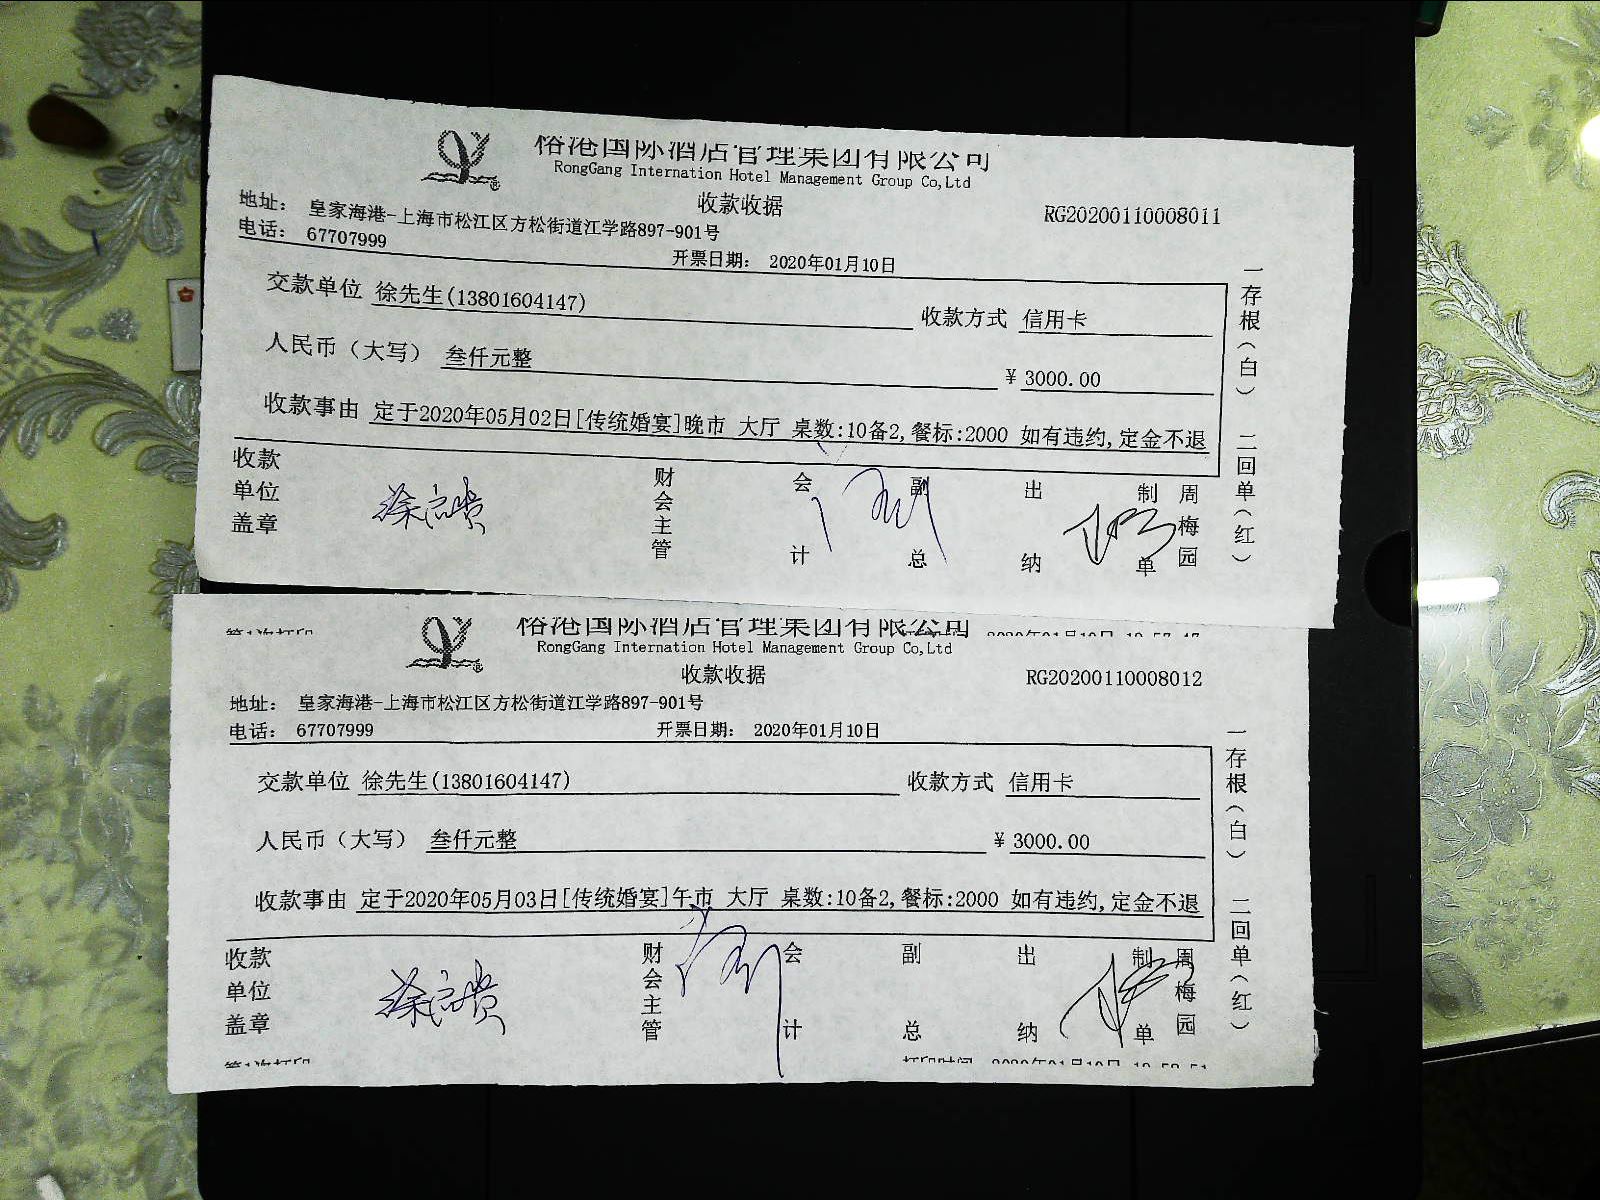 榕港国际酒店管理集团有限公司
RongGang Internation Hotel Management Group Co,Ltd
收款收据
RG20200110008011
地址： 皇家海港-上海市松江区方松街道江学路897-901号
电话： 67707999
开票日期： 2020年01月10日
交款单位 徐先生(13801604147) 收款方式 信用卡
人民币（大写） 叁仟元整 ¥ 3000.00
收款事由 定于2020年05月02日[传统婚宴]晚市 大厅 桌数:10备2,餐标:2000 如有违约,定金不退
收款单位盖章 财会主管 会计 副总 出纳 制单 周梅园
一存根（白） 二回单（红）
第1次打印
榕港国际酒店管理集团有限公司
RongGang Internation Hotel Management Group Co,Ltd
收款收据
RG20200110008012
地址： 皇家海港-上海市松江区方松街道江学路897-901号
电话： 67707999 开票日期： 2020年01月10日
交款单位 徐先生(13801604147) 收款方式 信用卡
人民币（大写） 叁仟元整 ¥ 3000.00
收款事由 定于2020年05月03日[传统婚宴]午市 大厅 桌数:10备2,餐标:2000 如有违约,定金不退
收款单位盖章 财会主管 会计 副总 出纳 制单 周梅园
一存根（白） 二回单（红）
第1次打印 打印时间 2020年01月10日